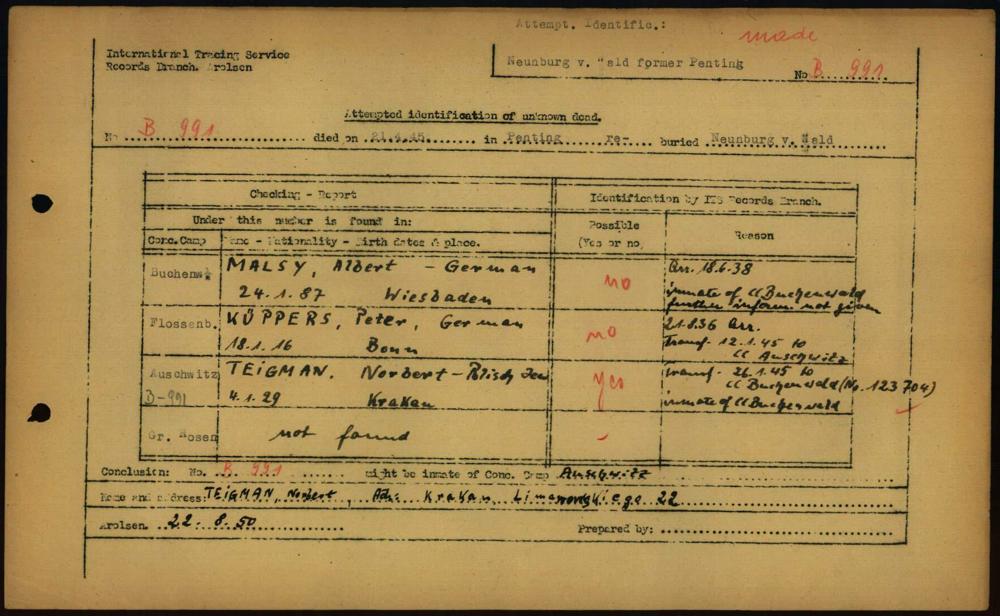 Attempt. Identific.:
made
International Tracing Service
Records Branch. Arolsen
Neunburg v. Wald former Penting
No B 991
Attempted identification of unknown dead.
No B 991 died on 21.4.45. in Penting re- buried Neunburg v. Wald
Checking - Report
Identification by ITS Records Branch.
Under this number is found in:
Possible
(Yes or no)
Reason
Conc.Camp
Name - Nationality - Birth dates & place.
Buchenw.
MALSY, Albert - German
24.1.87 Wiesbaden
no
Arr. 18.6.38
inmate of CC Buchenwald
further inform. not given
Flossenb.
KÜPPERS, Peter, German
18.1.16 Bonn
no
21.8.36 Arr.
transf. 12.1.45 to
CC Auschwitz
Auschwitz
B-991
TEIGMAN, Norbert - Polish Jew
4.1.29 Krakau
yes
transf. 26.1.45 to
CC Buchenwald (No. 123704)
inmate of CC Buchenwald
Gr. Rosen
not found
-
Conclusion: No. B 991 might be inmate of Conc. Camp Auschwitz
Name and address: TEIGMAN, Norbert, Adr. Krakau, Limanowskiego 22
Arolsen. 22. 8. 50 Prepared by: